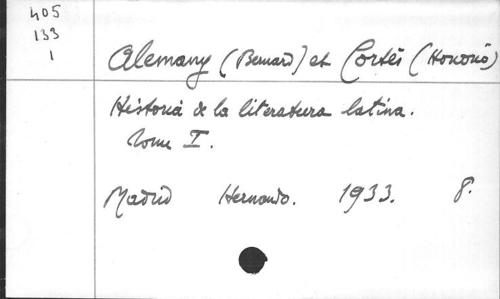 405
133
1
Alemany (Bernard) et Cortés (Honorio)
Historia de la literatura latina.
Tome I.
Madrid Hernando. 1933. 8.